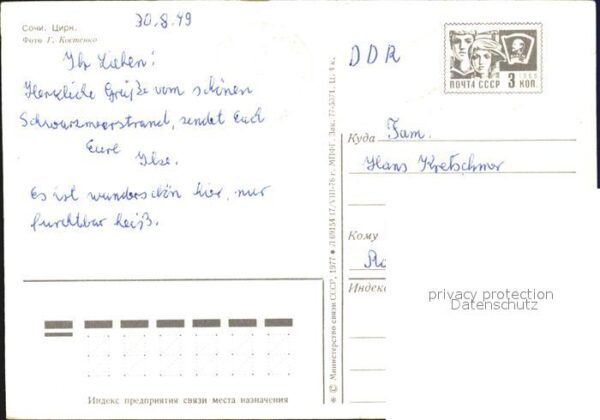 Сочи. Цирк.
Фото Г. Костенко
30.8.79
Ihr Lieben!
Herzliche Grüße vom schönen
Schwarzmeerstrand, sendet Euch
Eure
Ilse.
Es ist wunderschön hier, nur
furchtbar heiß.
Индекс предприятия связи места назначения
© Министерство связи СССР, 1977 Л 09154 17/VIII-76 г. МПФГ. Зак. 77-5371. Ц. 4 к.
DDR
1966
ПОЧТА СССР 3 КОП.
Куда Fam.
Hans Kretschmer
Кому
Индекс
privacy protection
Datenschutz